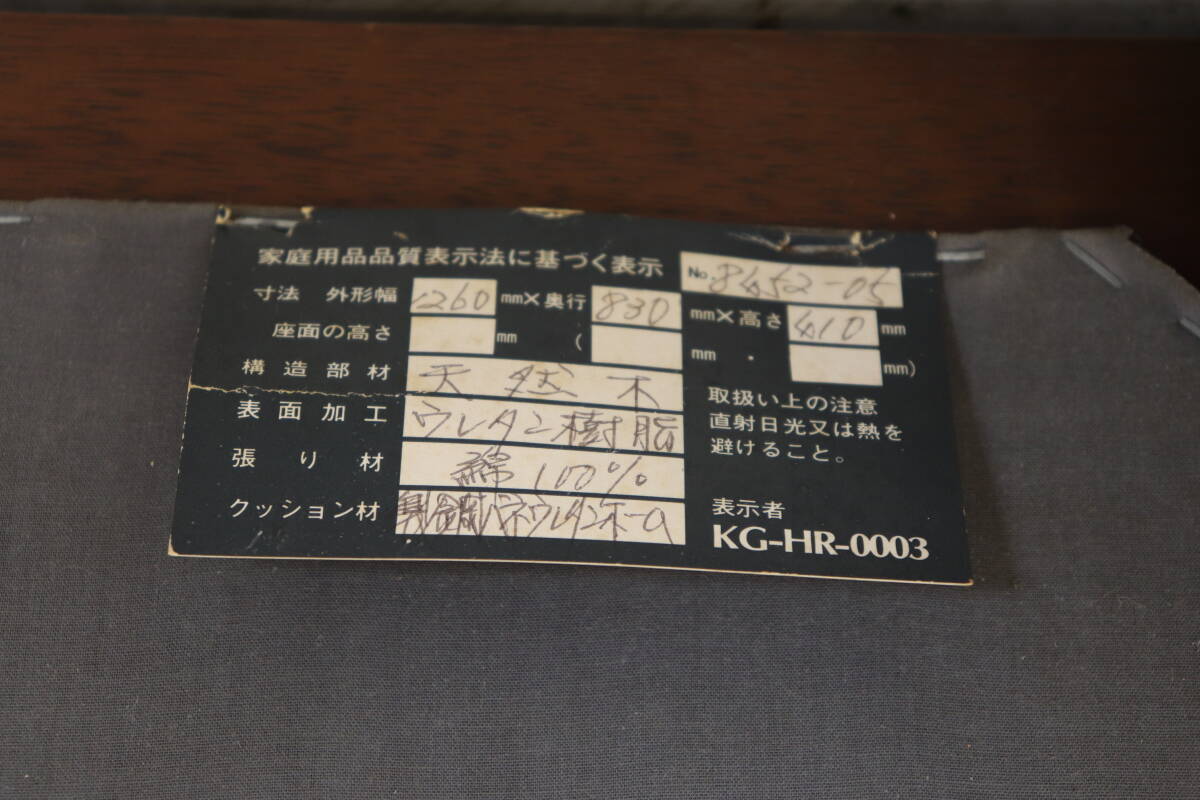 家庭用品品質表示法に基づく表示 No. 8452-05
寸法 外形幅 1260 mm×奥行 830 mm×高さ 410 mm
座面の高さ mm ( mm ・ mm)
構造部材 天然木
表面加工 ウレタン樹脂
張り材 綿100%
クッション材 鋼バネウレタンホーム
取扱い上の注意
直射日光又は熱を
避けること。
表示者
KG-HR-0003